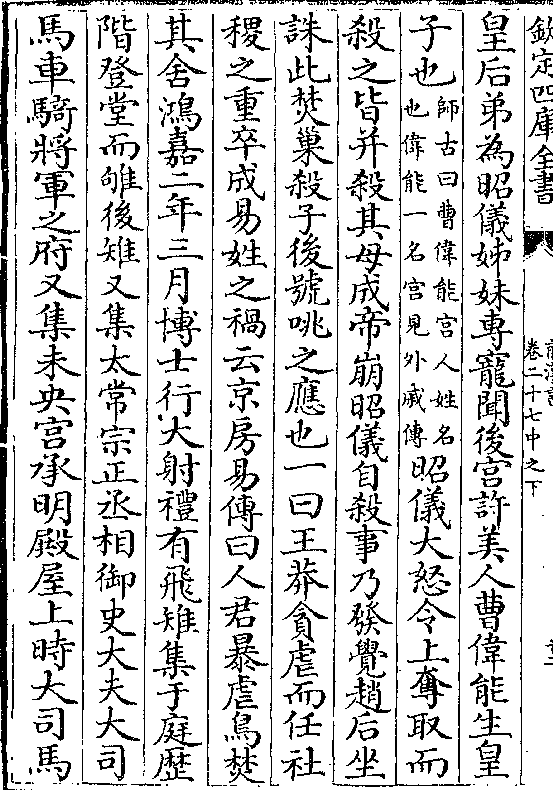 欽定四庫全書
卷二十七中之下
皇后弟為昭儀姊妹専寵聞後宮許美人曹偉能生皇
子也師古曰曹偉能宮人姓名也偉能一名宮見外戚傳昭儀大怒令上奪取而
殺之皆并殺其母成帝崩昭儀自殺事乃發覺趙后坐
誅此焚巢殺子後號咷之應也一曰王莽貪虐而任社
稷之重卒成易姓之禍云京房易傳曰人君暴虐鳥焚
其舍鴻嘉二年三月博士行大射禮有飛雉集于庭歴
階登堂而雊後雉又集太常宗正丞相御史大夫大司
馬車騎將軍之府又集未央宮承明殿屋上時大司馬